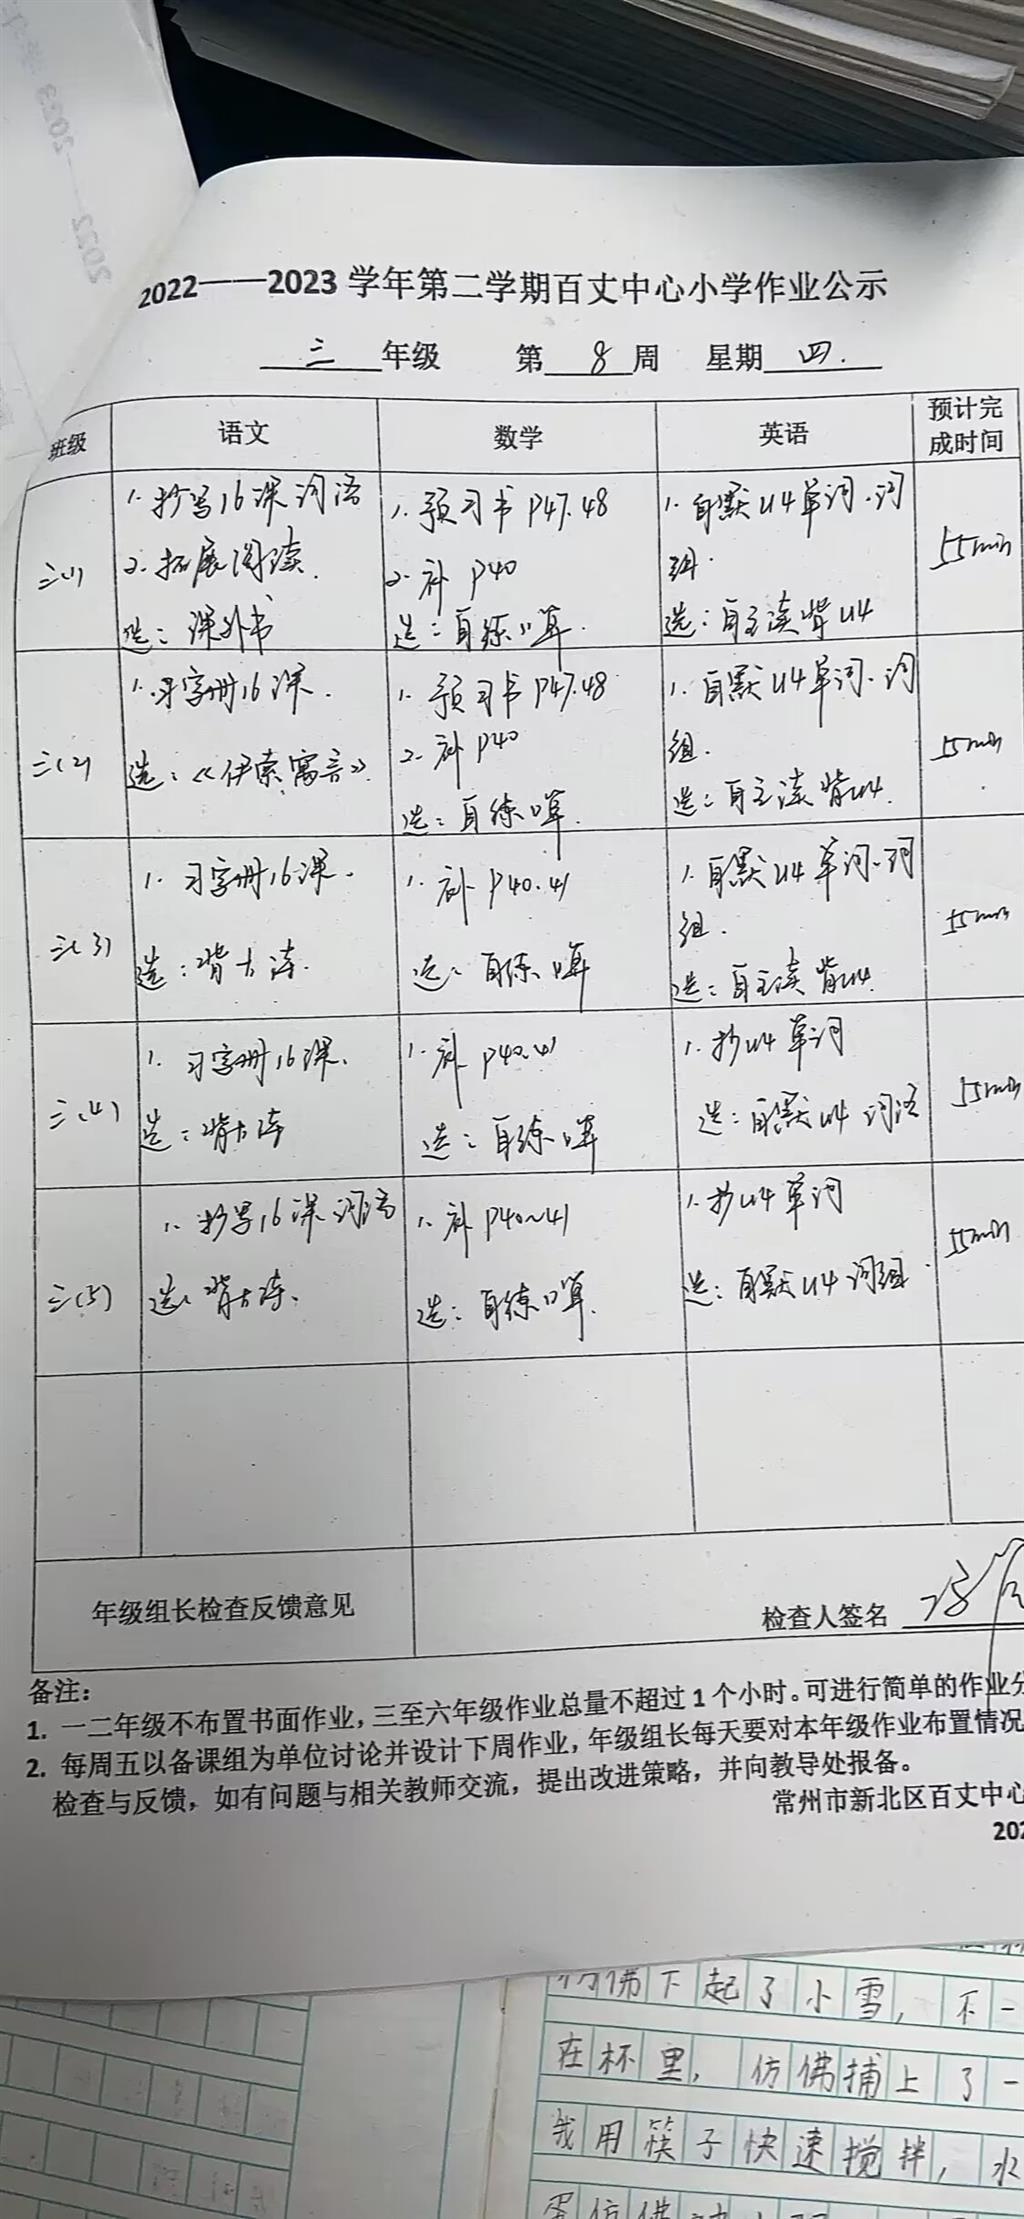 2022——2023 学年第二学期百丈中心小学作业公示
三 年级 第 8 周 星期 四.
班级 语文 数学 英语 预计完成时间
三(1)
1. 抄写16课词语
2. 拓展阅读.
选：课外书
1. 预习书 P47.48
2. 补 P40
选：自练口算.
1. 自默U4单词.词
组.
选：自主读背U4
55min
三(2)
1. 习字册16课.
选：《伊索寓言》.
1. 预习书 P47.48
2. 补 P40
选：自练口算.
1. 自默U4单词.词
组.
选：自主读背U4.
55min
三(3)
1. 习字册16课.
选：背古诗.
1. 补 P40.41
选：自练口算
1. 自默U4单词.词
组.
选：自主读背U4.
55min
三(4)
1. 习字册16课.
选：背古诗
1. 补 P40.41
选：自练口算
1. 抄U4单词
选：自默U4词语
55min
三(5)
1. 抄写16课词语
选：背古诗.
1. 补 P40~41
选：自练口算.
1. 抄U4单词
选：自默U4词组.
55min
年级组长检查反馈意见
检查人签名
备注：
1. 一二年级不布置书面作业，三至六年级作业总量不超过 1 个小时。可进行简单的作业分
2. 每周五以备课组为单位讨论并设计下周作业，年级组长每天要对本年级作业布置情况
检查与反馈，如有问题与相关教师交流，提出改进策略，并向教导处报备。
常州市新北区百丈中心
202
佛下起了小雪，不一
在杯里，仿佛捕上了一
我用筷子快速搅拌，水
蛋仿佛